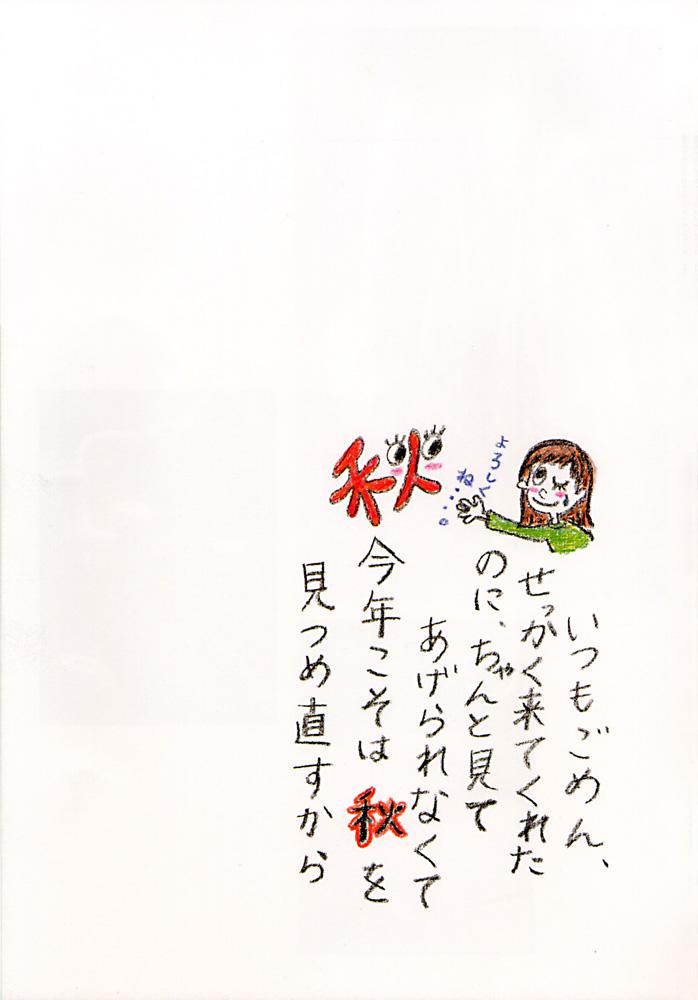 秋
よろしく
ね・・・。
いつもごめん、
せっかく来てくれた
のに、ちゃんと見て
あげられなくて
今年こそは秋を
見つめ直すから